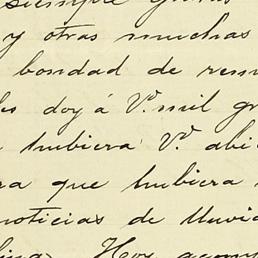 siempre
y otras muchas
bondad de rem
les doy á V. mil gr
hubiera V. abi
ra que hubiera
noticias de lluvi
Hoy acom